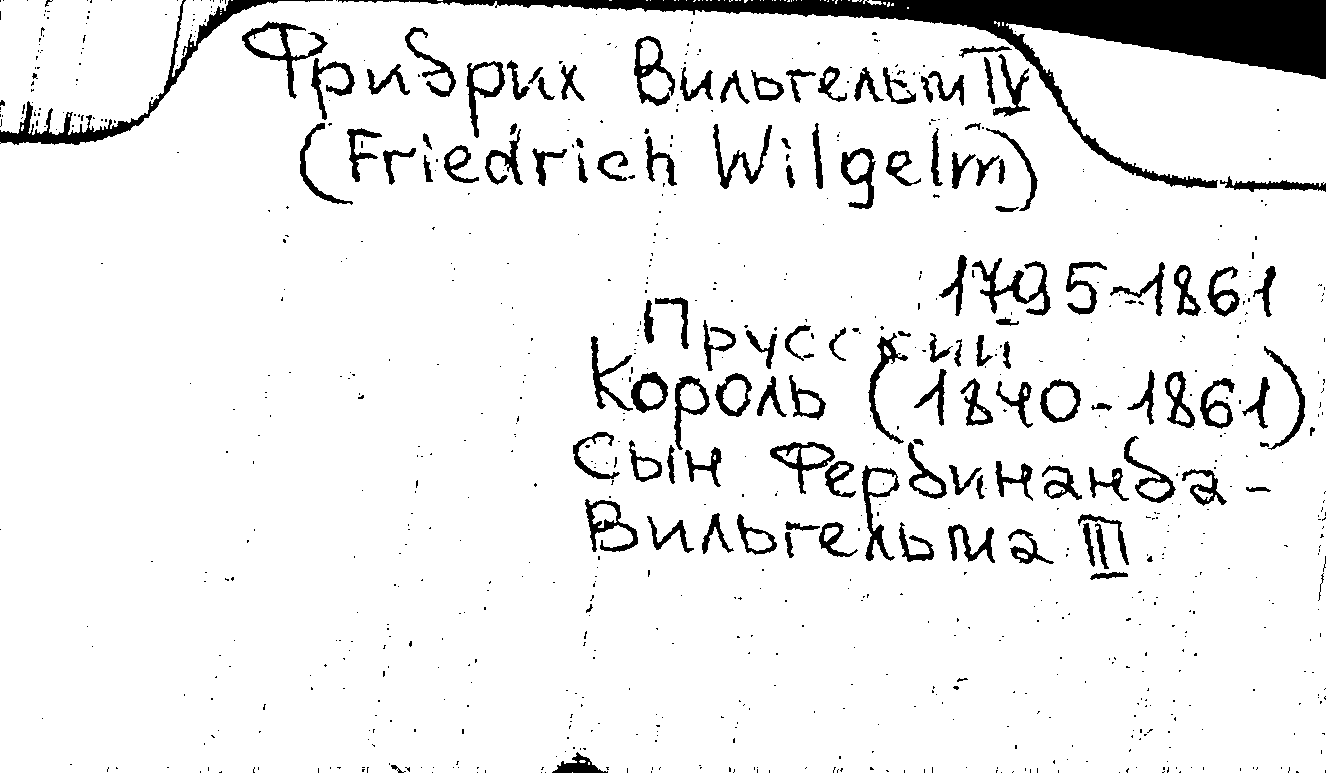 Фридрих Вильгельм IV
(Friedrich Wilgelm)
1795-1861
Прусский
Король (1840-1861).
Сын Фердинанда-
Вильгельма III.